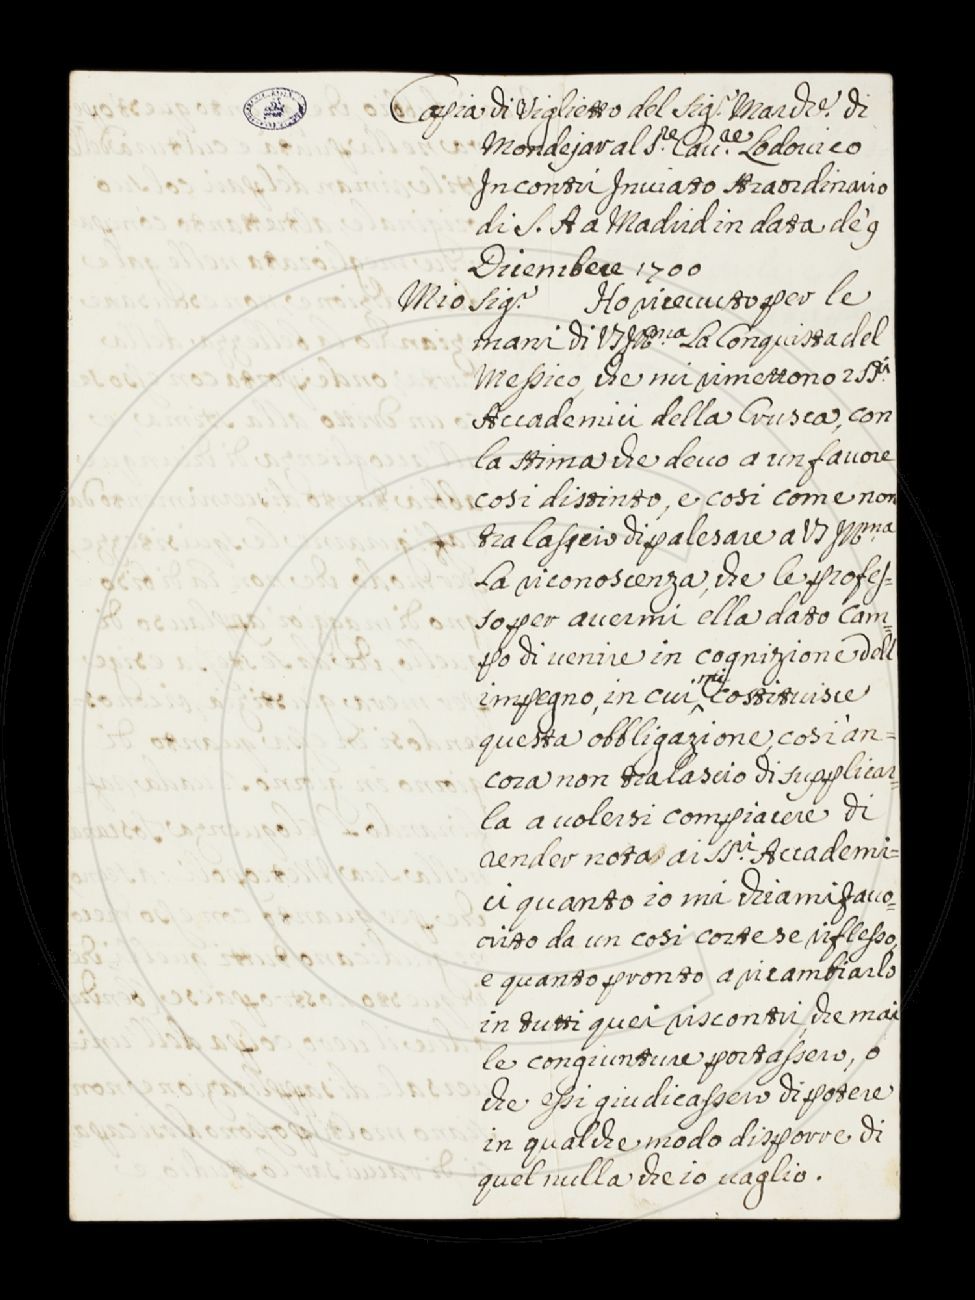 Copia di Viglietto del Sig.r March.e di
Mondejar al S.re Cav.re Lodovico
Incontri Inviato straordinario
di S. A a Madrid in data de' 9
Dicembere 1700
Mio Sig.r Ho ricevuto per le
mani di VS Ill.ma La Conquista del
Messico, che mi rimettono i SS.ri
Accademici della Crusca, con
la stima che devo a un favore
cosi distinto, e cosi come non
tralascio di palesare a VS Ill.ma
La riconoscenza, che le profes-
so per avermi ella dato Cam=
po di venire in cognizione dell
impegno, in cui mi costituisce
questa obbligazione, cosi an=
cora non tralascio di supplicar=
la a volersi compiacere di
render nota ai SS.ri Accademi=
ci quanto io mi chiami favo=
rito da un cosi cortese riflesso,
e quanto pronto a ricambiarlo
in tutti quei riscontri, che mai
le congiunture portassero, o
che essi giudicassero di potere
in qualche modo disporre di
quel nulla che io vaglio.